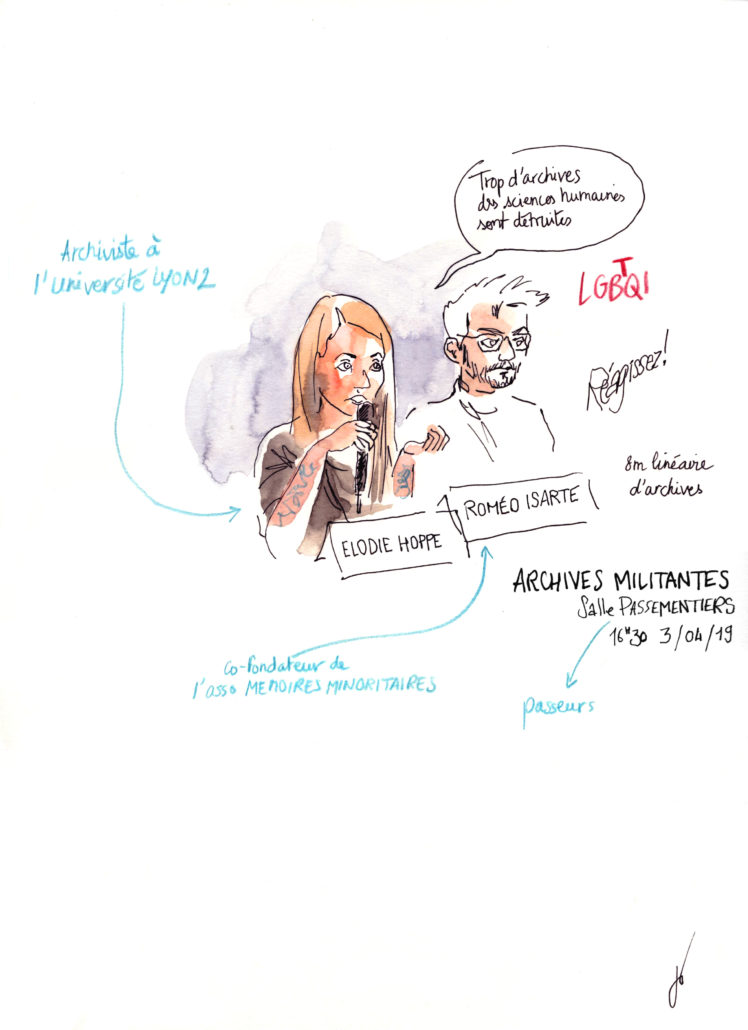 Trop d'archives
des sciences humaines
sont détruites
Archiviste à
l'université LYON2
LGBTQI
Réagissez!
8m linéaire
d'archives
ELODIE HOPPE
ROMÉO ISARTE
ARCHIVES MILITANTES
Salle PASSEMENTIERS
16H30 3/04/19
Co-fondateur de
l'asso MEMOIRES MINORITAIRES
passeurs